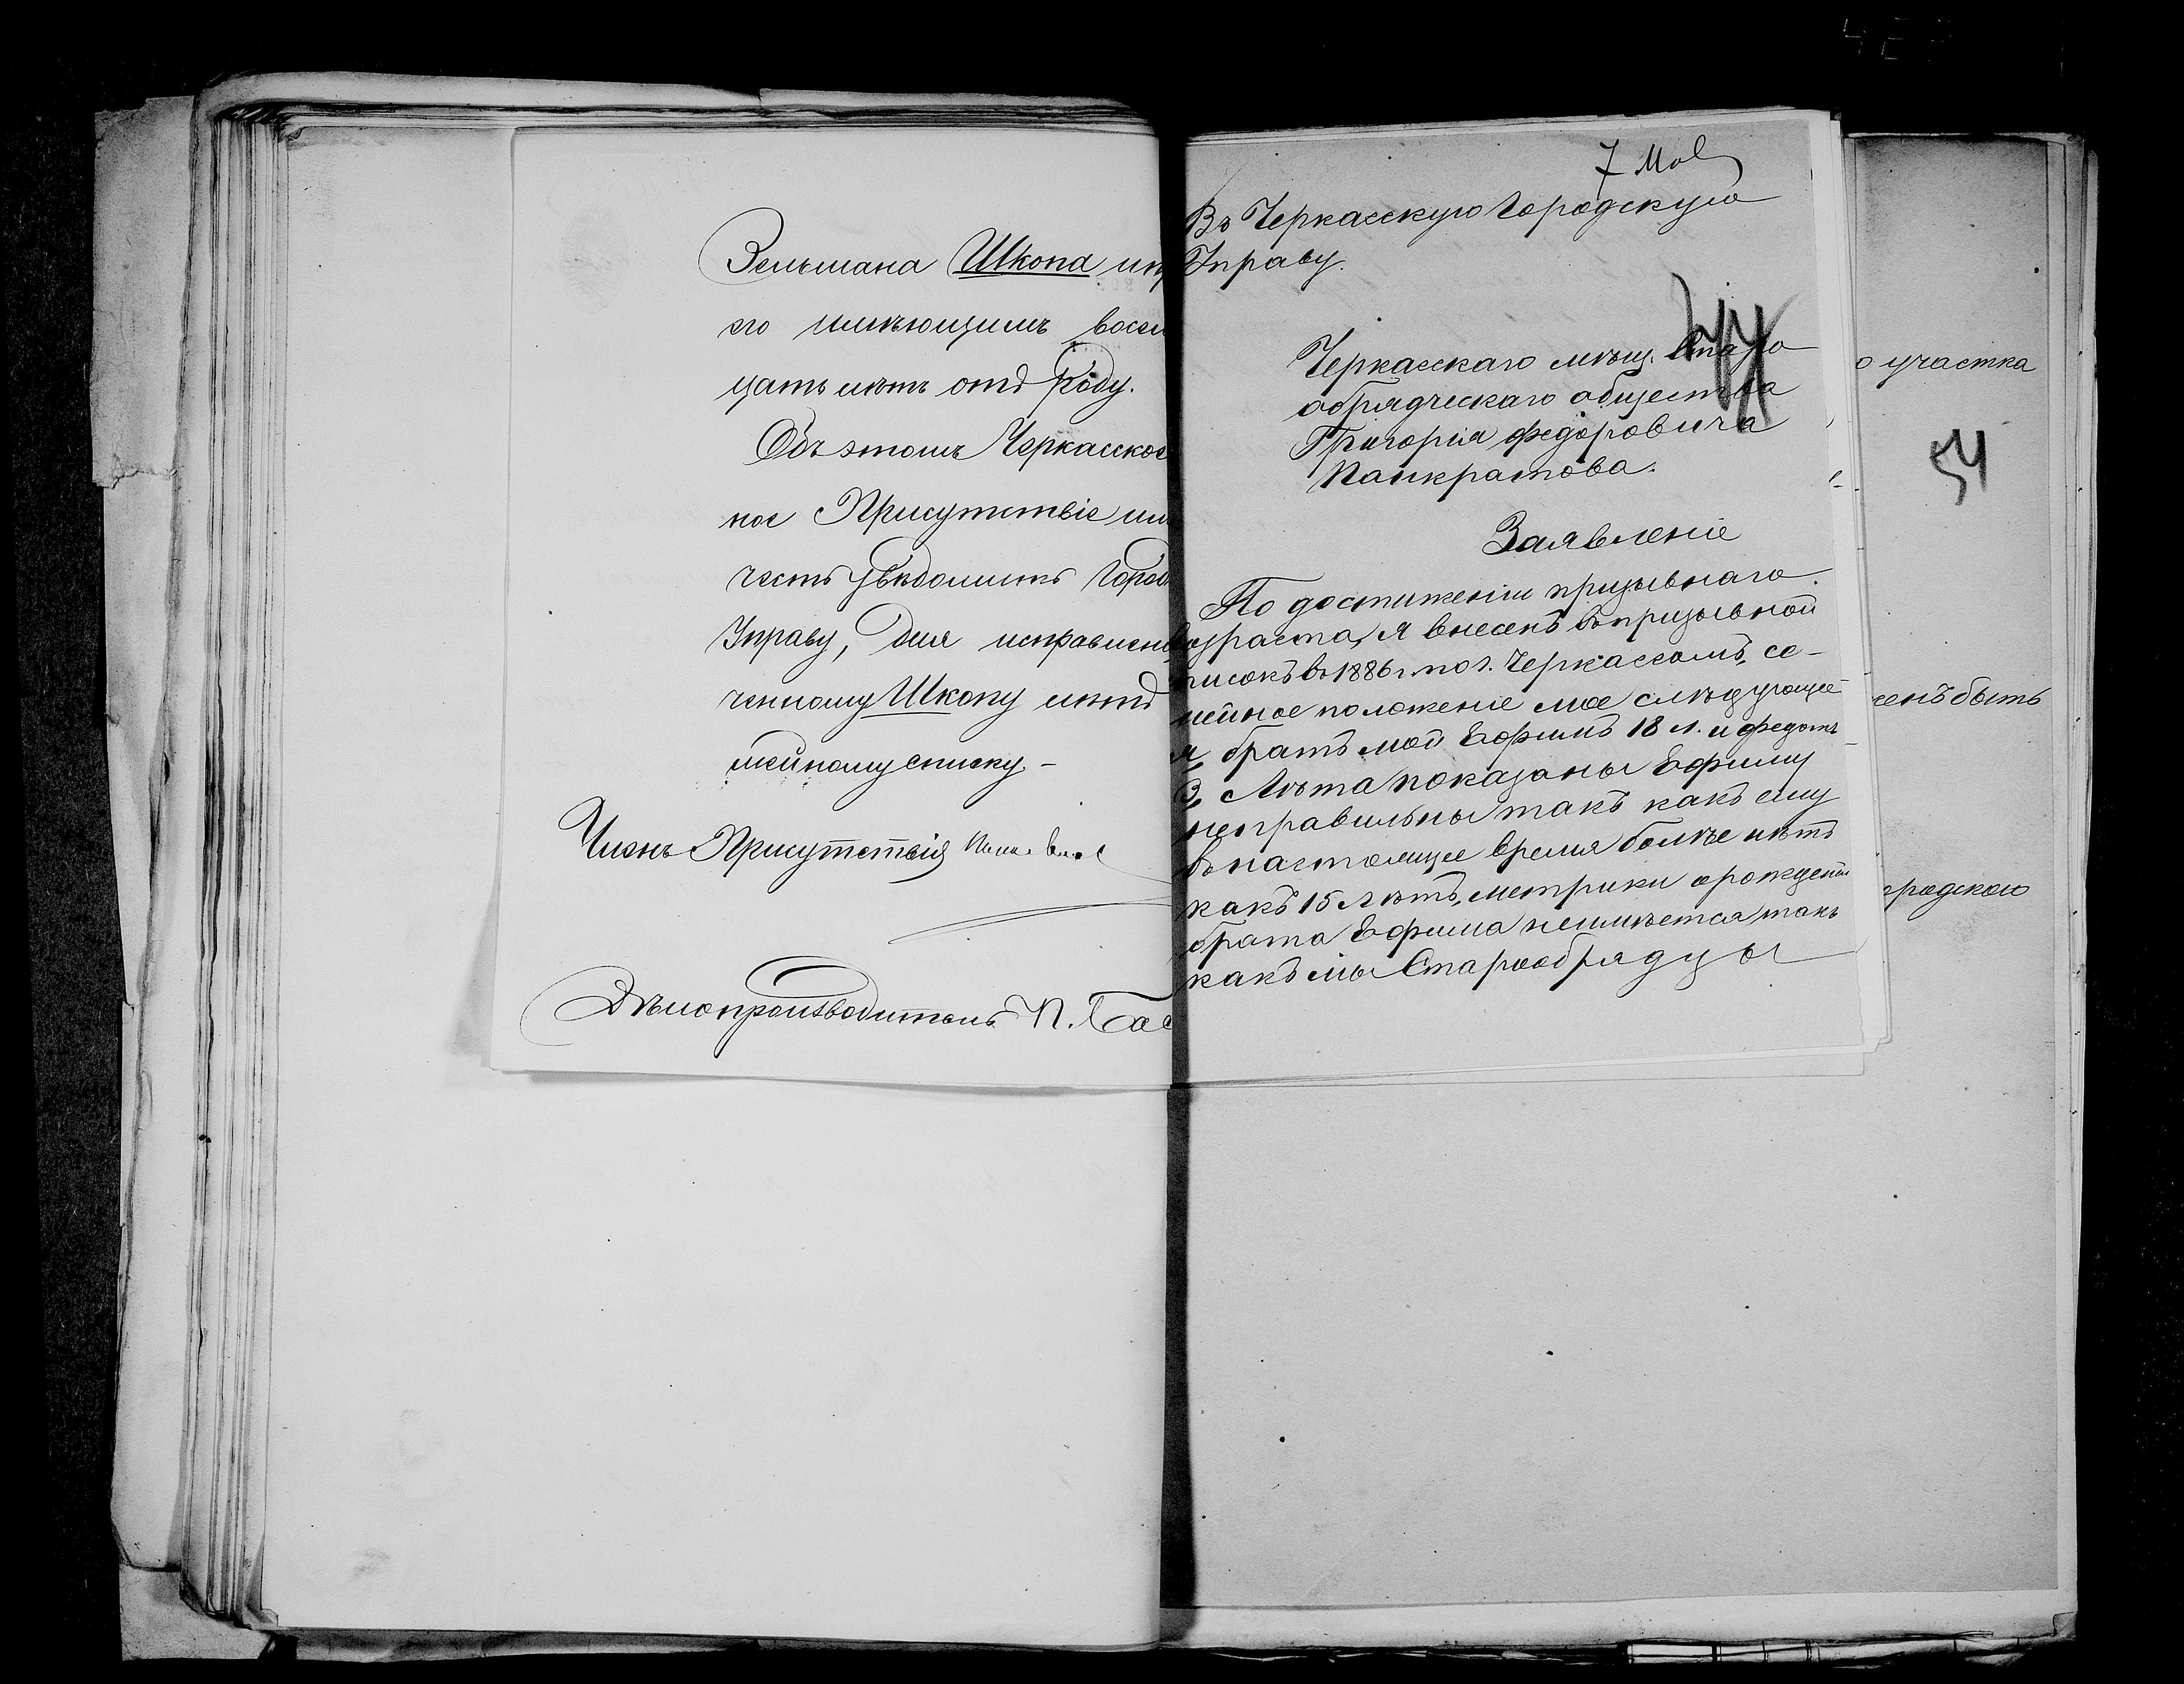 Зельмана Шкопа
его имѣющимъ восем
цать лѣтъ отъ роду.
Объ этомъ Черкасское
ное Присутствіе им
честь увѣдомить Город
Управу, для исправлен
ченному Шкопу лѣтъ
мейному списку. –
Членъ Присутствія
Дѣлопроизводитель П. Бас
7 Мая
Въ Черкасскую Городскую
Управу.
Черкасскаго мѣщ. Старо
обрядческаго общества
Григорія Федоровича
Панкратова.
Заявленіе
По достиженіи призывнаго
возраста, я внесенъ въ призывной
списокъ въ 1886 г. по г. Черкассамъ, се-
мейное положеніе мое слѣдующее
я, братъ мой Ефимъ 18 л. и Федотъ
3, Лѣта показаны Ефиму
неправильны такъ какъ ему
въ настоящее время болѣе нѣтъ
какъ 15 лѣтъ, метрики о рожденіи
брата Ефима неимѣется, такъ
какъ мы Старообрядцы
о участка
54
сенъ быть
городскою